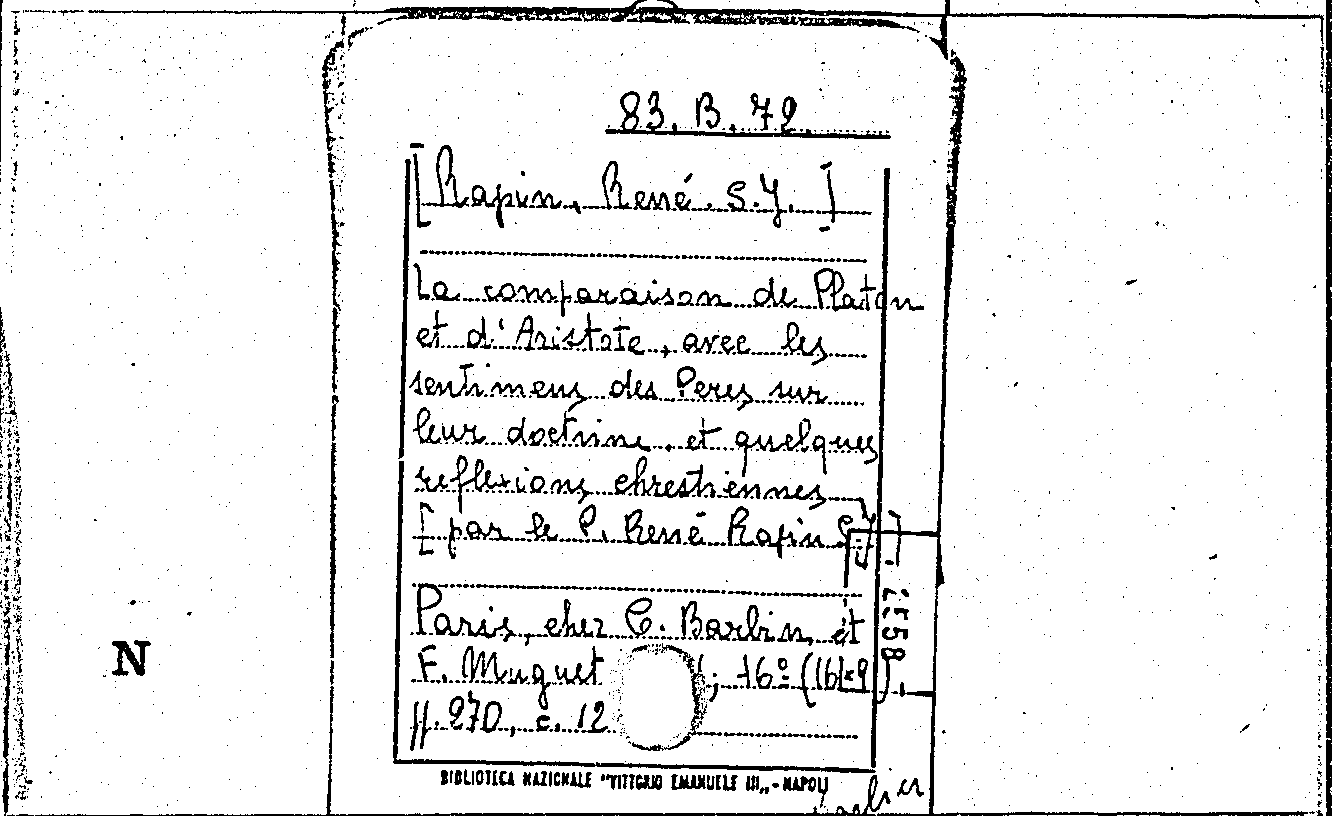 83. B. 72
[Rapin, René. S.J.]
La comparaison de Platon
et d'Aristote, avec les
sentimens des Peres sur
leur doctrine, et quelques
reflexions chrestiennes
[par le P. René Rapin S.J.].
Paris, chez C. Barbin et
F. Muguet ; 16º (16x9).
pp. 270, c. 12
2558
N
BIBLIOTECA NAZIONALE "VITTORIO EMANUELE III,, - NAPOLI